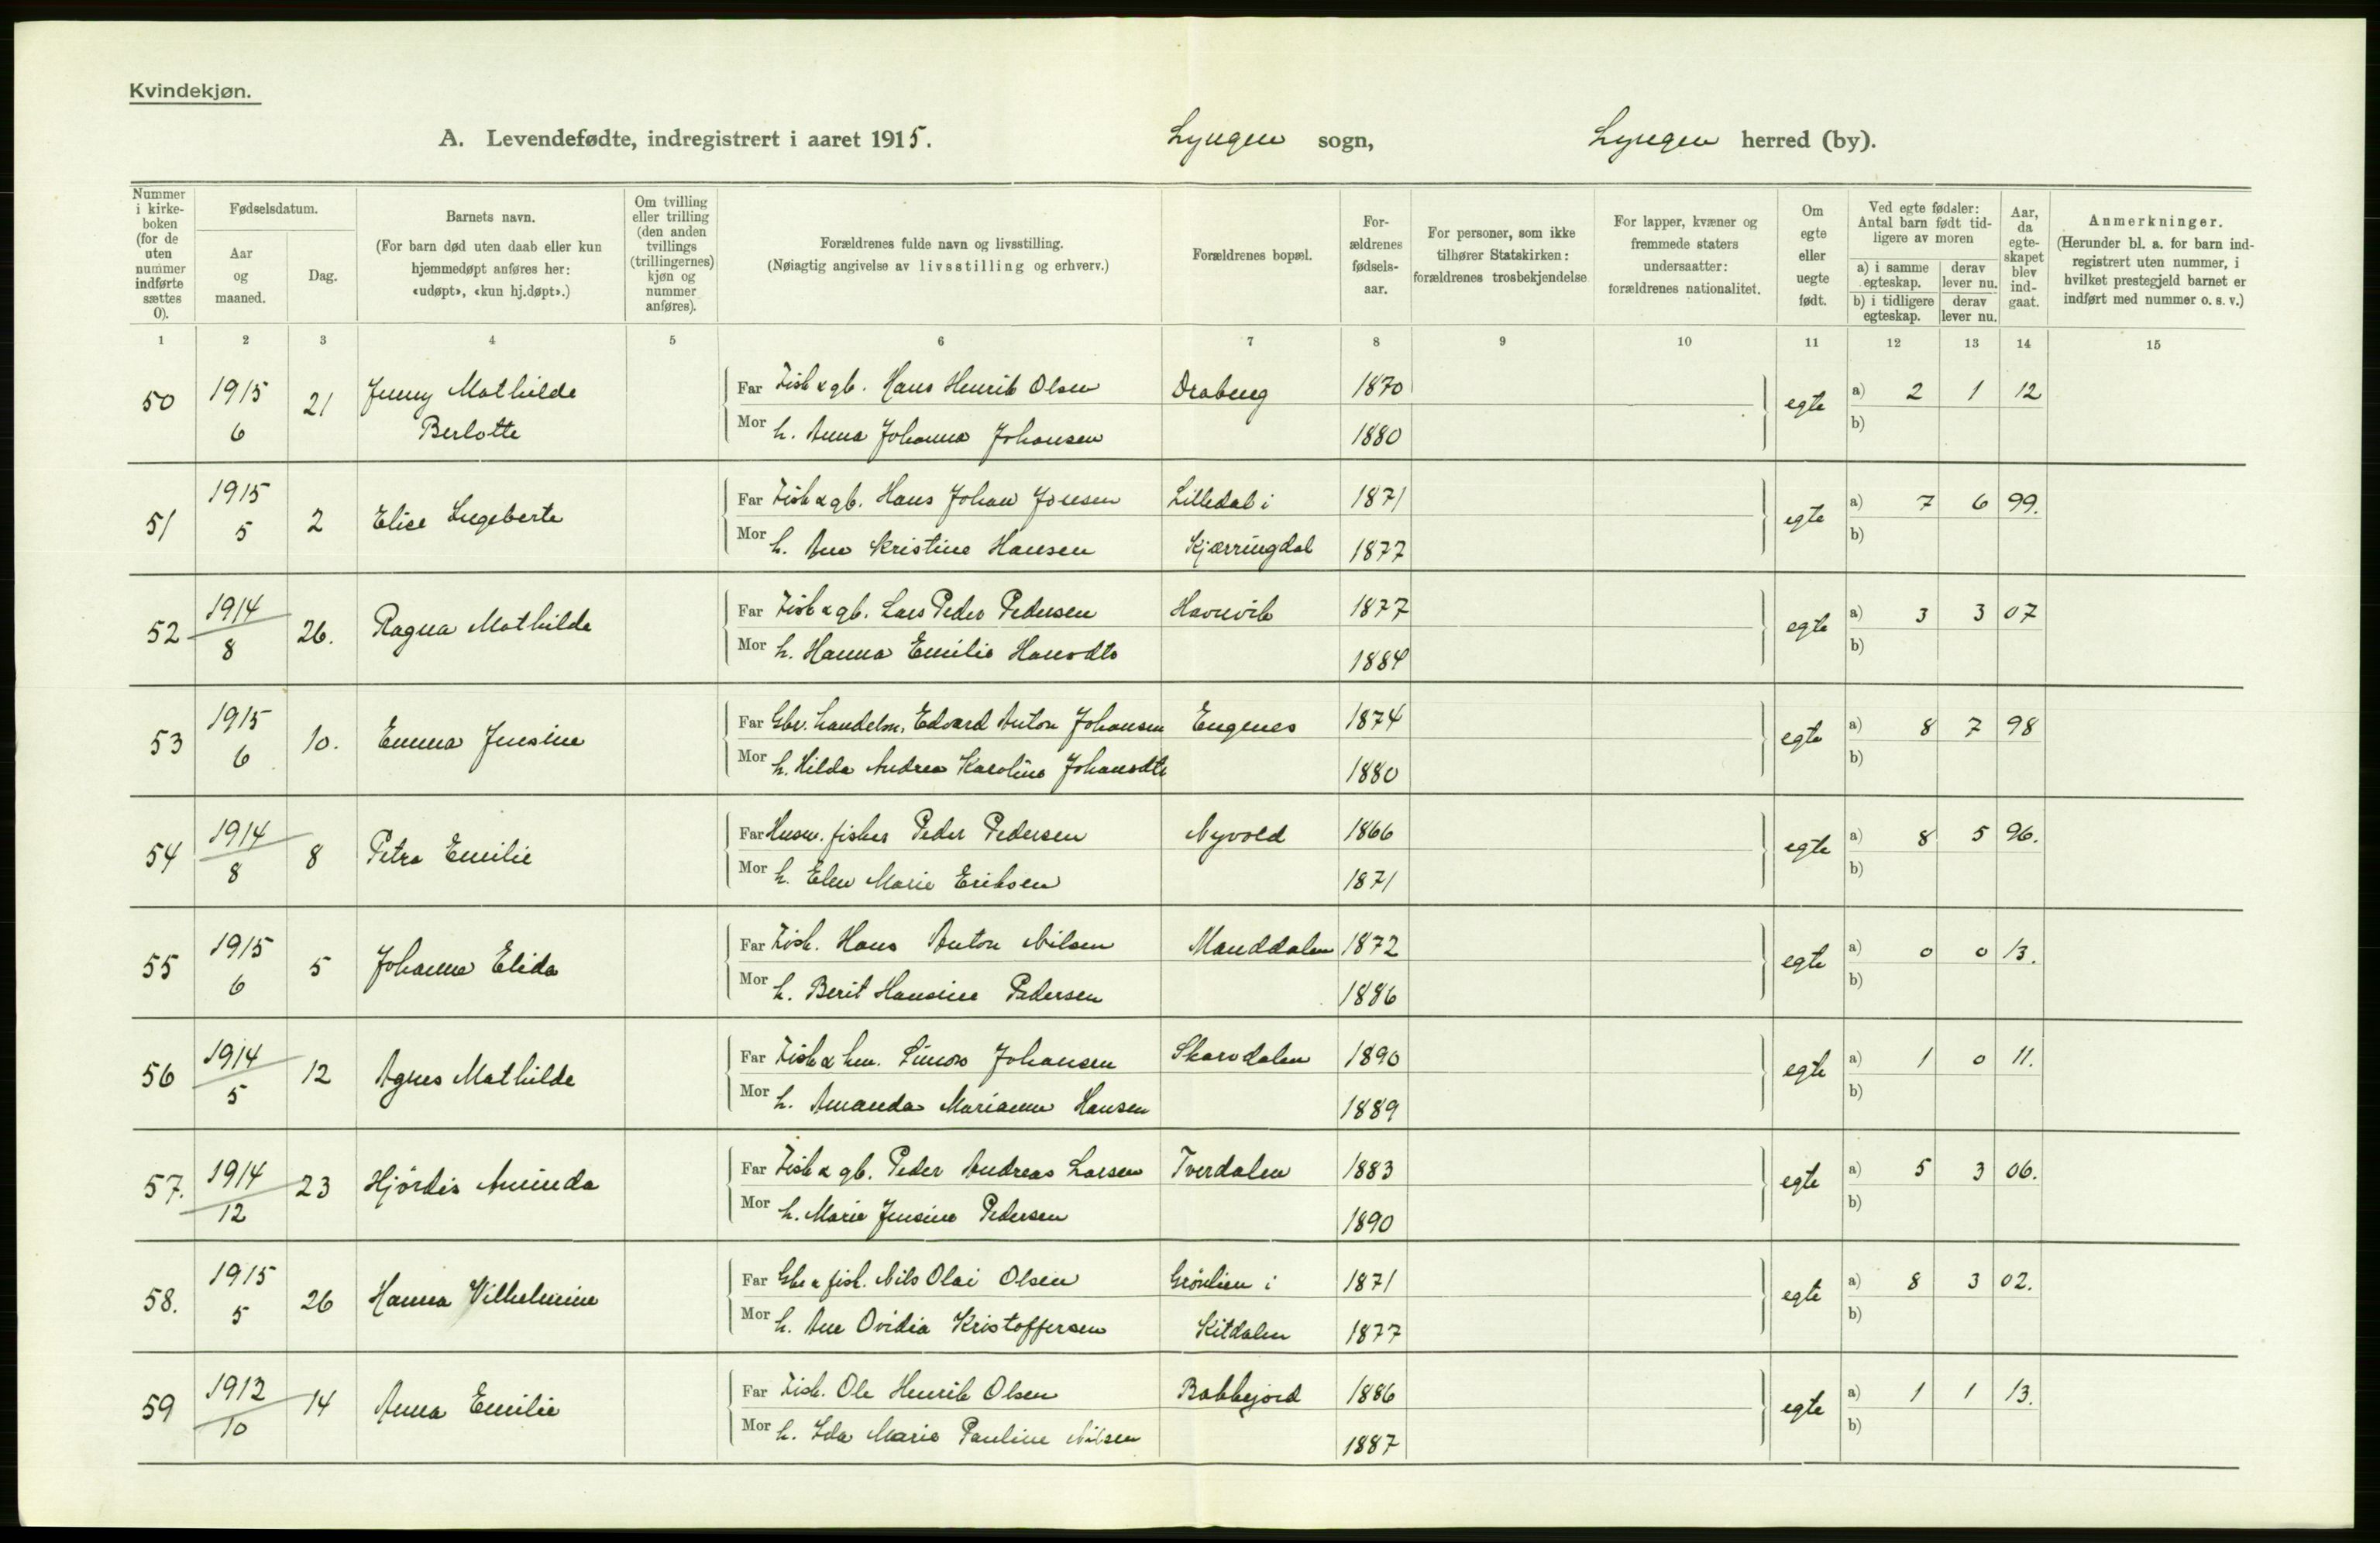 Kvindekjøn.
A. Levendefødte, indregistrert i aaret 1915. Lyngen sogn, Lyngen herred (by).
Nummer i kirke-boken (for de uten nummer indførte sættes 0).
Fødselsdatum.
Aar og maaned.
Dag.
Barnets navn.
(For barn død uten daab eller kun hjemmedøpt anføres her: «udøpt», «kun hj.døpt».)
Om tvilling eller trilling (den anden tvillings (trillingernes) kjøn og nummer anføres).
Forældrenes fulde navn og livsstilling.
(Nøiagtig angivelse av livsstilling og erhverv.)
Forældrenes bopæl.
For-ældrenes fødsels-aar.
For personer, som ikke tilhører Statskirken: forældrenes trosbekjendelse
For lapper, kvæner og fremmede staters undersaatter: forældrenes nationalitet.
Om egte eller uegte født.
Ved egte fødsler: Antal barn født tid-ligere av moren
a) i samme egteskap. derav lever nu.
b) i tidligere egteskap. derav lever nu.
Aar, da egte-skapet blev ind-gaat.
Anmerkninger.
(Herunder bl. a. for barn ind-registrert uten nummer, i hvilket prestegjeld barnet er indført med nummer o. s. v.)
1 2 3 4 5 6 7 8 9 10 11 12 13 14 15
50 1915 6 21 Jenny Mathilde Berlotte
Far Fisk & gb. Hans Henrik Olsen 1870 egte a) 2 1 12
Mor h. Anna Johanna Johansen 1880 b)
51 1915 5 2 Elise Ingeberte
Far Fisk & gb. Hans Johan Jonsen Lilledal i 1871 egte a) 7 6 99.
Mor h. Ane Kristine Hansen Kjærringdal 1877 b)
52 1914 8 26. Ragna Mathilde
Far Fisk & gb. Lars Peder Pedersen Havnvik 1877 egte a) 3 3 07
Mor h. Hanna Emilie Hansdtr 1884 b)
53 1915 6 10. Emma Jensine
Far Gbr. handelsm. Edvard Anton Johansen Engenes 1874 egte a) 8 7 98
Mor h. Hilda Andrea Karoline Johansdtr 1880 b)
54 1914 8 8 Petra Emilie
Far Husm. fisker Peder Pedersen Nyvold 1866 egte a) 8 5 96.
Mor h. Elen Marie Eriksen 1871 b)
55 1915 6 5 Johanna Elida
Far Fisk. Hans Anton Nilsen Manddalen 1872 egte a) 0 0 13.
Mor h. Berit Hansine Pedersen 1886 b)
56 1914 5 12 Agnes Mathilde
Far Fisk & hm. Simon Johansen Skarvdalen 1890 egte a) 1 0 11.
Mor h. Amanda Marianne Hansen 1889 b)
57. 1914 12 23 Hjördis Aminda
Far Fisk & gb. Peder Andreas Larsen Tverdalen 1883 egte a) 5 3 06.
Mor h. Marie Jensine Pedersen 1890 b)
58. 1915 5 26 Hanna Vilhelmine
Far Gbr & fisk. Nils Olai Olsen Grönlien i 1871 egte a) 8 3 02.
Mor h. Ane Ovidia Kristoffersen Kitdalen 1877 b)
59 1912 10 14 Anna Emilie
Far Fisk. Ole Henrik Olsen 1886 egte a) 1 1 13.
Mor h. Ida Marie Pauline Nilsen 1887 b)